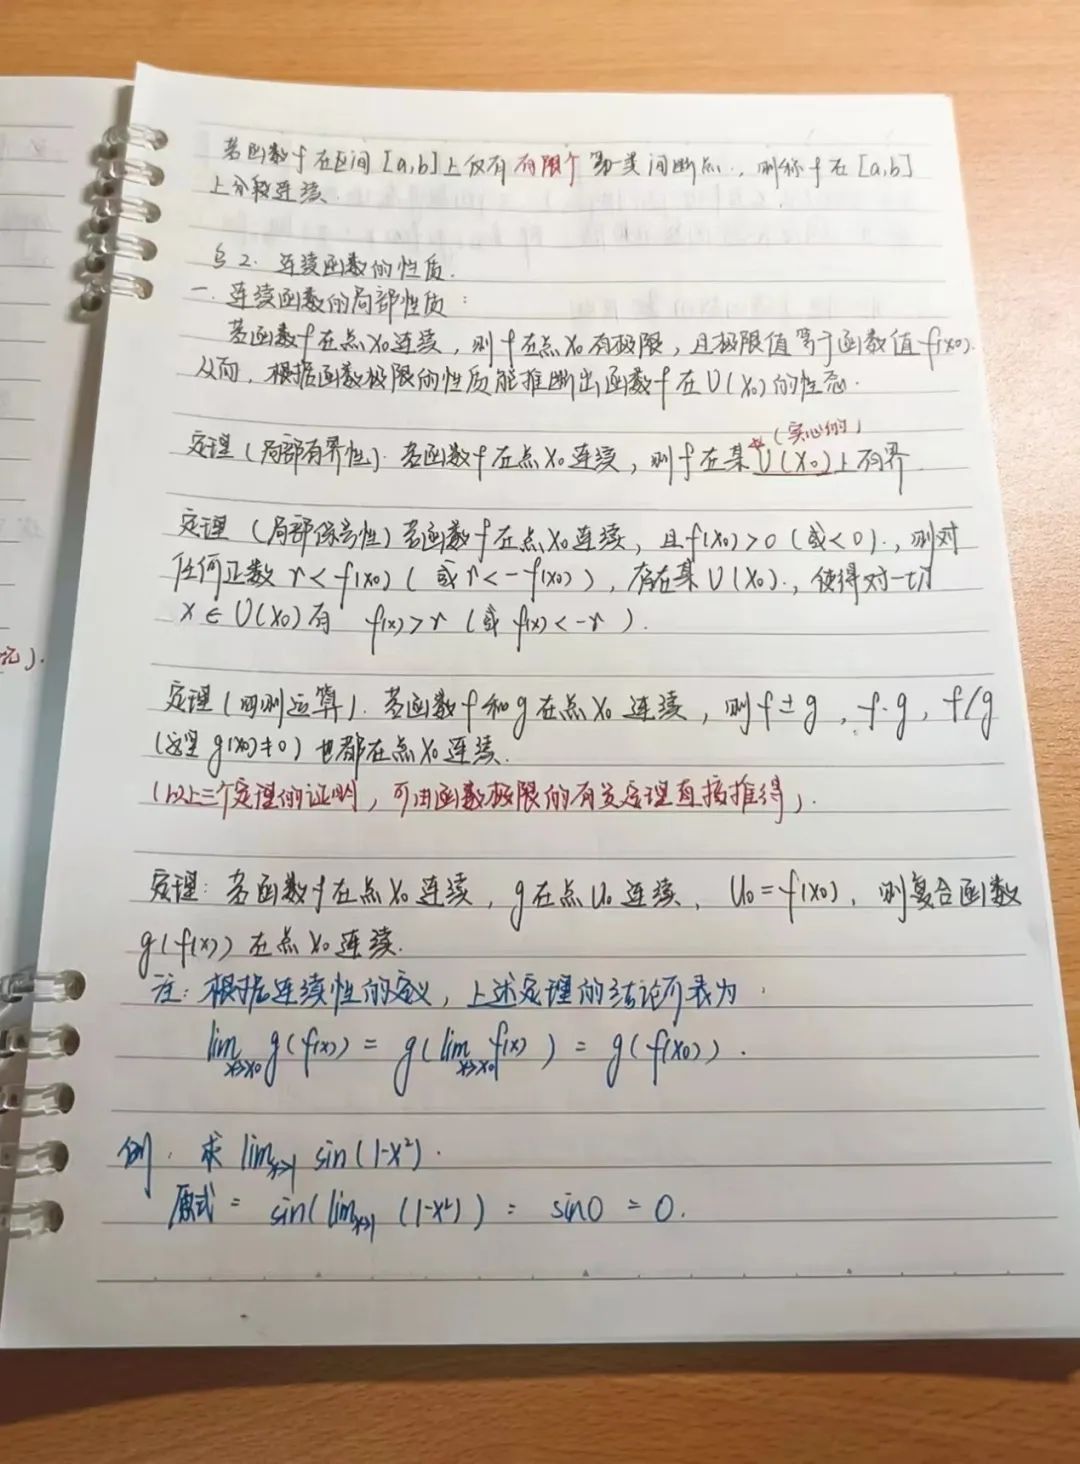 若函数f在区间[a,b]上仅有有限个第一类间断点.,则称f在[a,b]
上分段连续.
§2.连续函数的性质.
一.连续函数的局部性质:
若函数f在点x₀连续,则f在点x₀有极限,且极限值等于函数值f(x₀).
从而,根据函数极限的性质能推断出函数f在U(x₀)的性态.
*(实心的)
定理(局部有界性).若函数f在点x₀连续,则f在某U(x₀)上有界
定理(局部保号性)若函数f在点x₀连续,且f(x₀)>0(或<0).,则对
任何正数r<f(x₀)(或r<-f(x₀)),存在某U(x₀).,使得对一切
x∈U(x₀)有 f(x)>r(或f(x)<-r).
定理(四则运算).若函数f和g在点x₀连续,则f±g,f·g,f/g
(这里g(x₀)≠0)也都在点x₀连续.
(以上三个定理的证明,可由函数极限的有关定理直接推得).
定理:若函数f在点x₀连续,g在点u₀连续,u₀=f(x₀),则复合函数
g(f(x))在点x₀连续.
注:根据连续性的定义,上述定理的结论可表为
lim g(f(x)) = g(lim f(x)) = g(f(x₀)).
x→x₀ x→x₀
例.求 lim x→1 sin(1-x²).
原式= sin(lim x→1 (1-x²)) = sin0 = 0.
元).